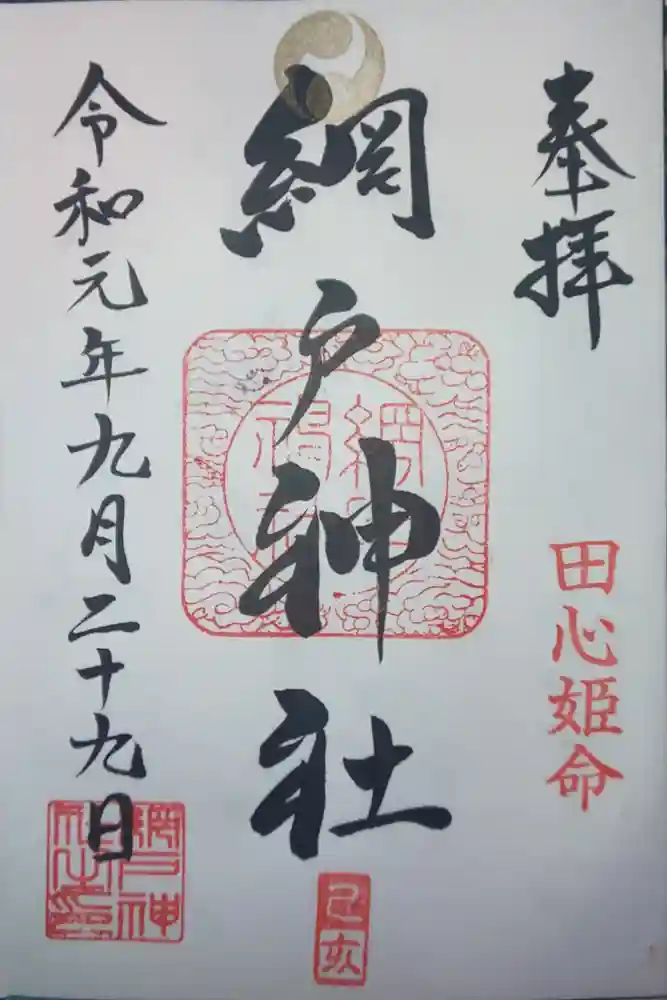 奉拝
田心姫命
網戸神社
己亥
令和元年九月二十九日